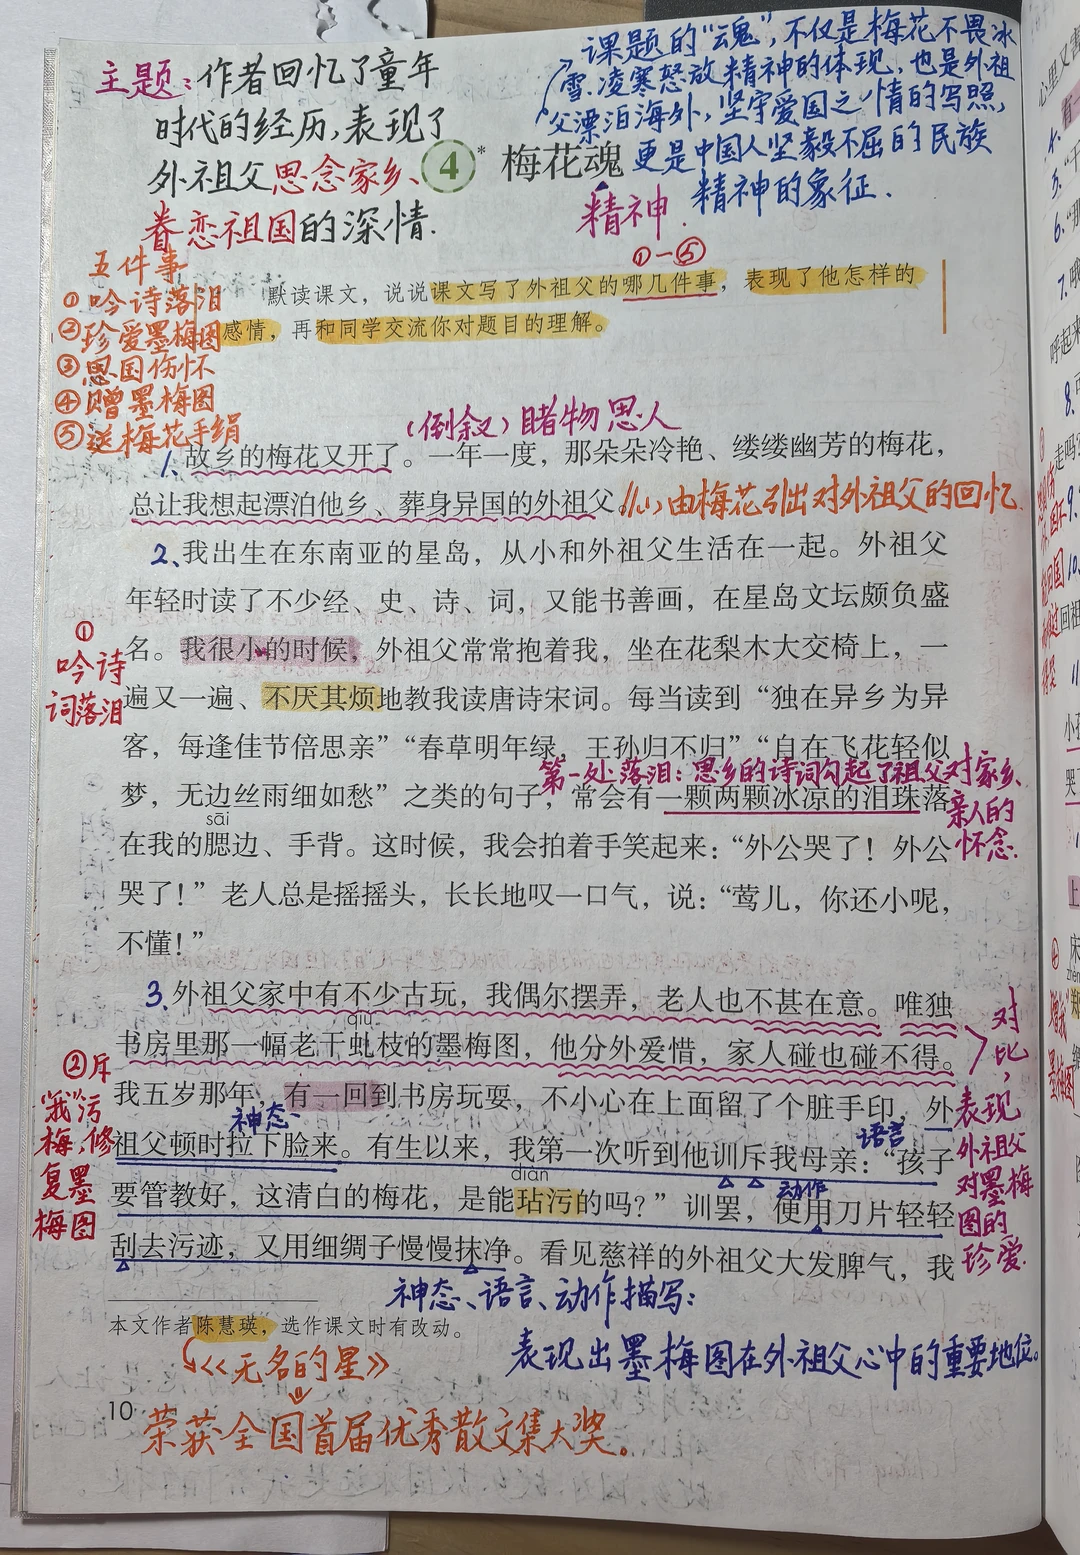 主题：作者回忆了童年
时代的经历，表现了
外祖父思念家乡、
眷恋祖国的深情.
课题的“魂”，不仅是梅花不畏冰
雪、凌寒怒放精神的体现，也是外祖
父漂泊海外，坚守爱国之情的写照，
更是中国人坚毅不屈的民族
精神的象征.
4* 梅花魂
精神.
①—⑤
五件事
①吟诗落泪
②珍爱墨梅图
③思国伤怀
④赠墨梅图
⑤送梅花手绢
默读课文，说说课文写了外祖父的哪几件事，表现了他怎样的
感情，再和同学交流你对题目的理解。
(倒叙) 睹物思人
1、故乡的梅花又开了。一年一度，那朵朵冷艳、缕缕幽芳的梅花，
总让我想起漂泊他乡、葬身异国的外祖父。//(1)由梅花引出对外祖父的回忆
2、我出生在东南亚的星岛，从小和外祖父生活在一起。外祖父
年轻时读了不少经、史、诗、词，又能书善画，在星岛文坛颇负盛
名。我很小的时候，外祖父常常抱着我，坐在花梨木大交椅上，一
遍又一遍、不厌其烦地教我读唐诗宋词。每当读到“独在异乡为异
客，每逢佳节倍思亲”“春草明年绿，王孙归不归”“自在飞花轻似
梦，无边丝雨细如愁”之类的句子，常会有一颗两颗冰凉的泪珠落
sāi
在我的腮边、手背。这时候，我会拍着手笑起来：“外公哭了！外公
哭了！”老人总是摇摇头，长长地叹一口气，说：“莺儿，你还小呢，
不懂！”
①
吟诗
词落泪
第一处落泪：思乡的诗词勾起了祖父对家乡、
亲人的
怀念.
3、外祖父家中有不少古玩，我偶尔摆弄，老人也不甚在意。唯独
qiú
书房里那一幅老干虬枝的墨梅图，他分外爱惜，家人碰也碰不得。
我五岁那年，有一回到书房玩耍，不小心在上面留了个脏手印，外
祖父顿时拉下脸来。有生以来，我第一次听到他训斥我母亲：“孩子
diàn
要管教好，这清白的梅花，是能玷污的吗？”训罢，便用刀片轻轻
刮去污迹，又用细绸子慢慢抹净。看见慈祥的外祖父大发脾气，我
神态、
语言
动作
②斥
“我”污
梅，修
复墨
梅图
对
比，
表现
外祖父
对墨梅
图的
珍爱.
神态、语言、动作描写：
表现出墨梅图在外祖父心中的重要地位。
本文作者陈慧瑛，选作课文时有改动。
《无名的星》
10
荣获全国首届优秀散文集大奖。